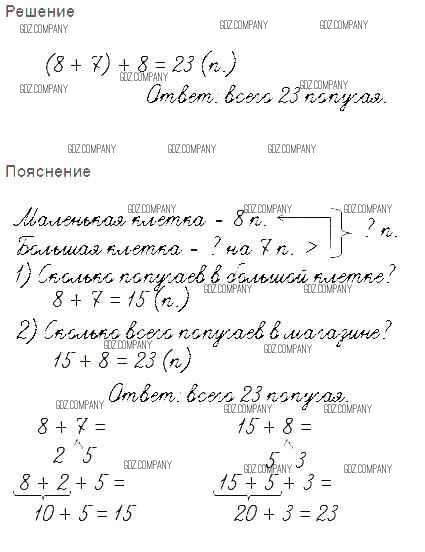 Решение
GDZ.COMPANY GDZ.COMPANY GDZ.COMPANY
(8 + 7) + 8 = 23 (п.)
GDZ.COMPANY GDZ.COMPANY GDZ.COMPANY
Ответ: всего 23 попугая.
GDZ.COMPANY GDZ.COMPANY GDZ.COMPANY
Пояснение
GDZ.COMPANY GDZ.COMPANY GDZ.COMPANY
Маленькая клетка - 8 п.
Большая клетка - ? на 7 п. > ? п.
1) Сколько попугаев в большой клетке?
GDZ.COMPANY GDZ.COMPANY
8 + 7 = 15 (п.)
2) Сколько всего попугаев в магазине?
GDZ.COMPANY GDZ.COMPANY
15 + 8 = 23 (п)
Ответ: всего 23 попугая.
GDZ.COMPANY GDZ.COMPANY
8 + 7 = 15 + 8 =
2 5 5 3
GDZ.COMPANY GDZ.COMPANY GDZ.COMPANY
8 + 2 + 5 = 15 + 5 + 3 =
10 + 5 = 15 20 + 3 = 23